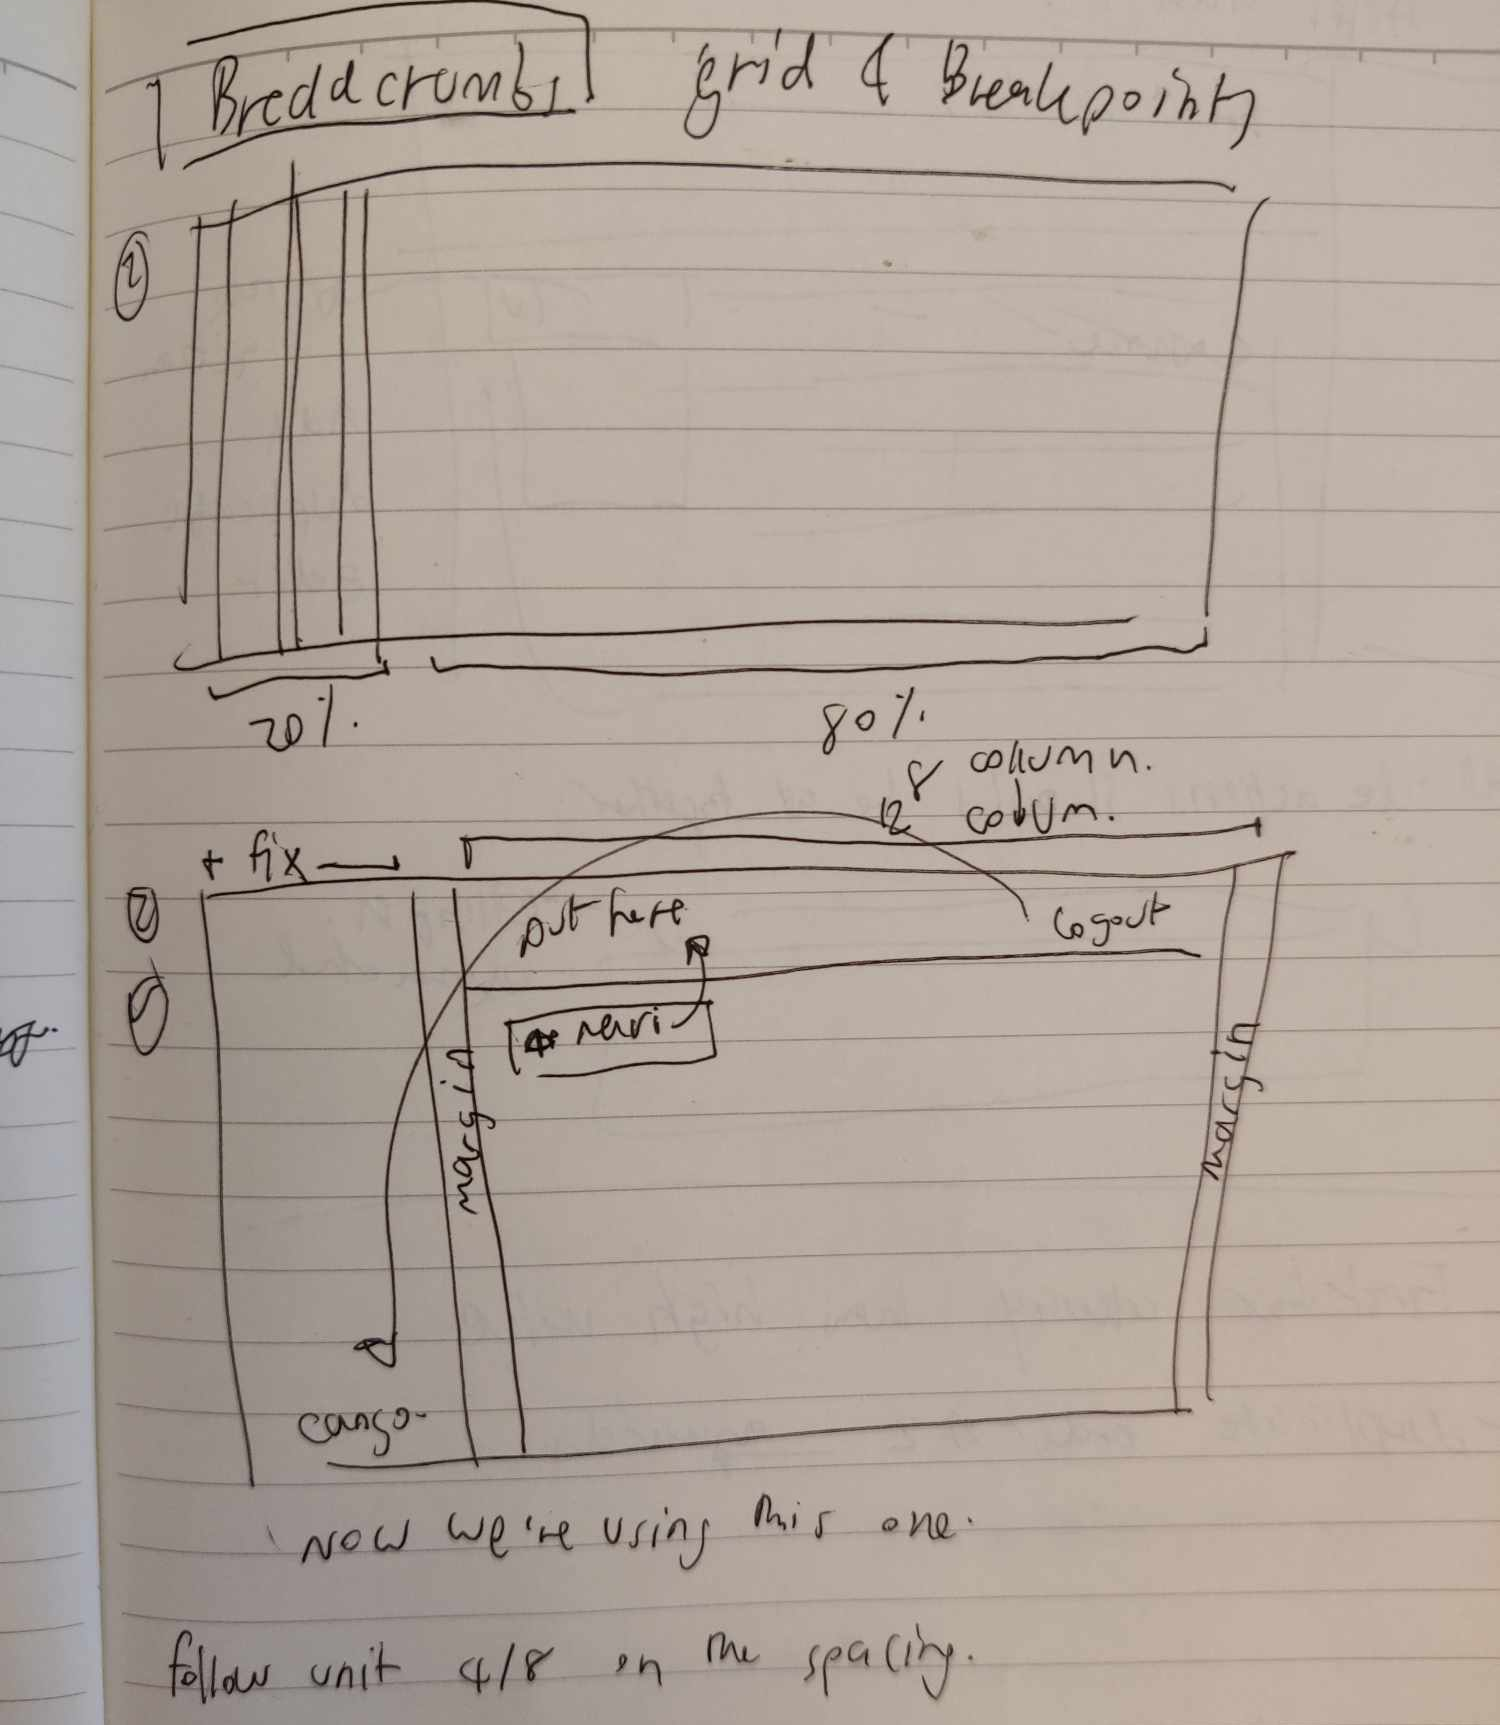 1 Breadcrumbs grid & Breakpoints
20%. 80%.
8 column.
12 column.
+ fix
2
put here logout
margin margin
Now we're using this one.
follow unit 4/8 on the spacing.